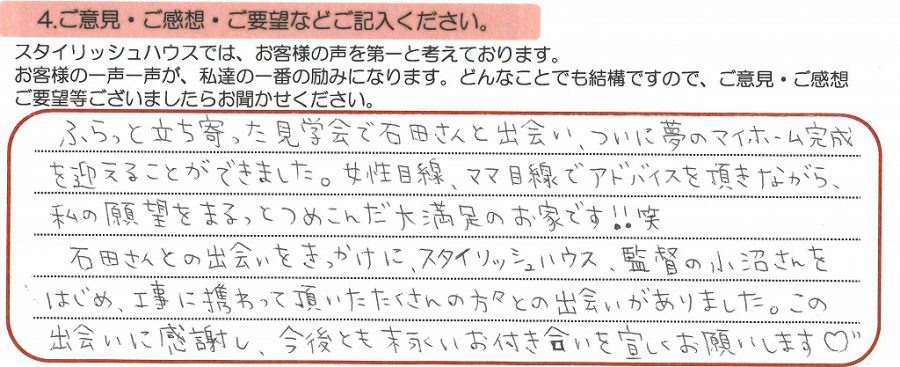 4.ご意見・ご感想・ご要望などご記入ください。
スタイリッシュハウスでは、お客様の声を第一と考えております。
お客様の一声一声が、私達の一番の励みになります。どんなことでも結構ですので、ご意見・ご感想
ご要望等ございましたらお聞かせください。
ふらっと立ち寄った見学会で石田さんと出会い、ついに夢のマイホーム完成
を迎えることができました。女性目線、ママ目線でアドバイスを頂きながら、
私の願望をまるっとつめこんだ大満足のお家です!!笑
石田さんとの出会いをきっかけに、スタイリッシュハウス、監督の小沼さんを
はじめ、工事に携わって頂いたたくさんの方々との出会いがありました。この
出会いに感謝し、今後とも末永いお付き合いを宜しくお願いします♡